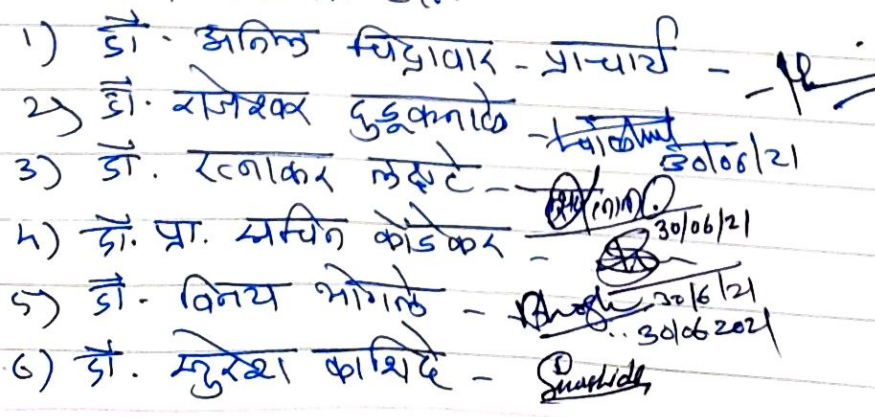 १) डॉ. अनिल चिद्रावार - प्राचार्य -
२) डॉ. राजेश्वर दुडूकनाळे - 30/06/21
३) डॉ. रत्नाकर लक्षटे - 30/06/21
४) डॉ. प्रा. सचिन कोडेकर -
५) डॉ. विनय भोगले - 30/6/21
30/06 2021
६) डॉ. सुरेश काशिदे -